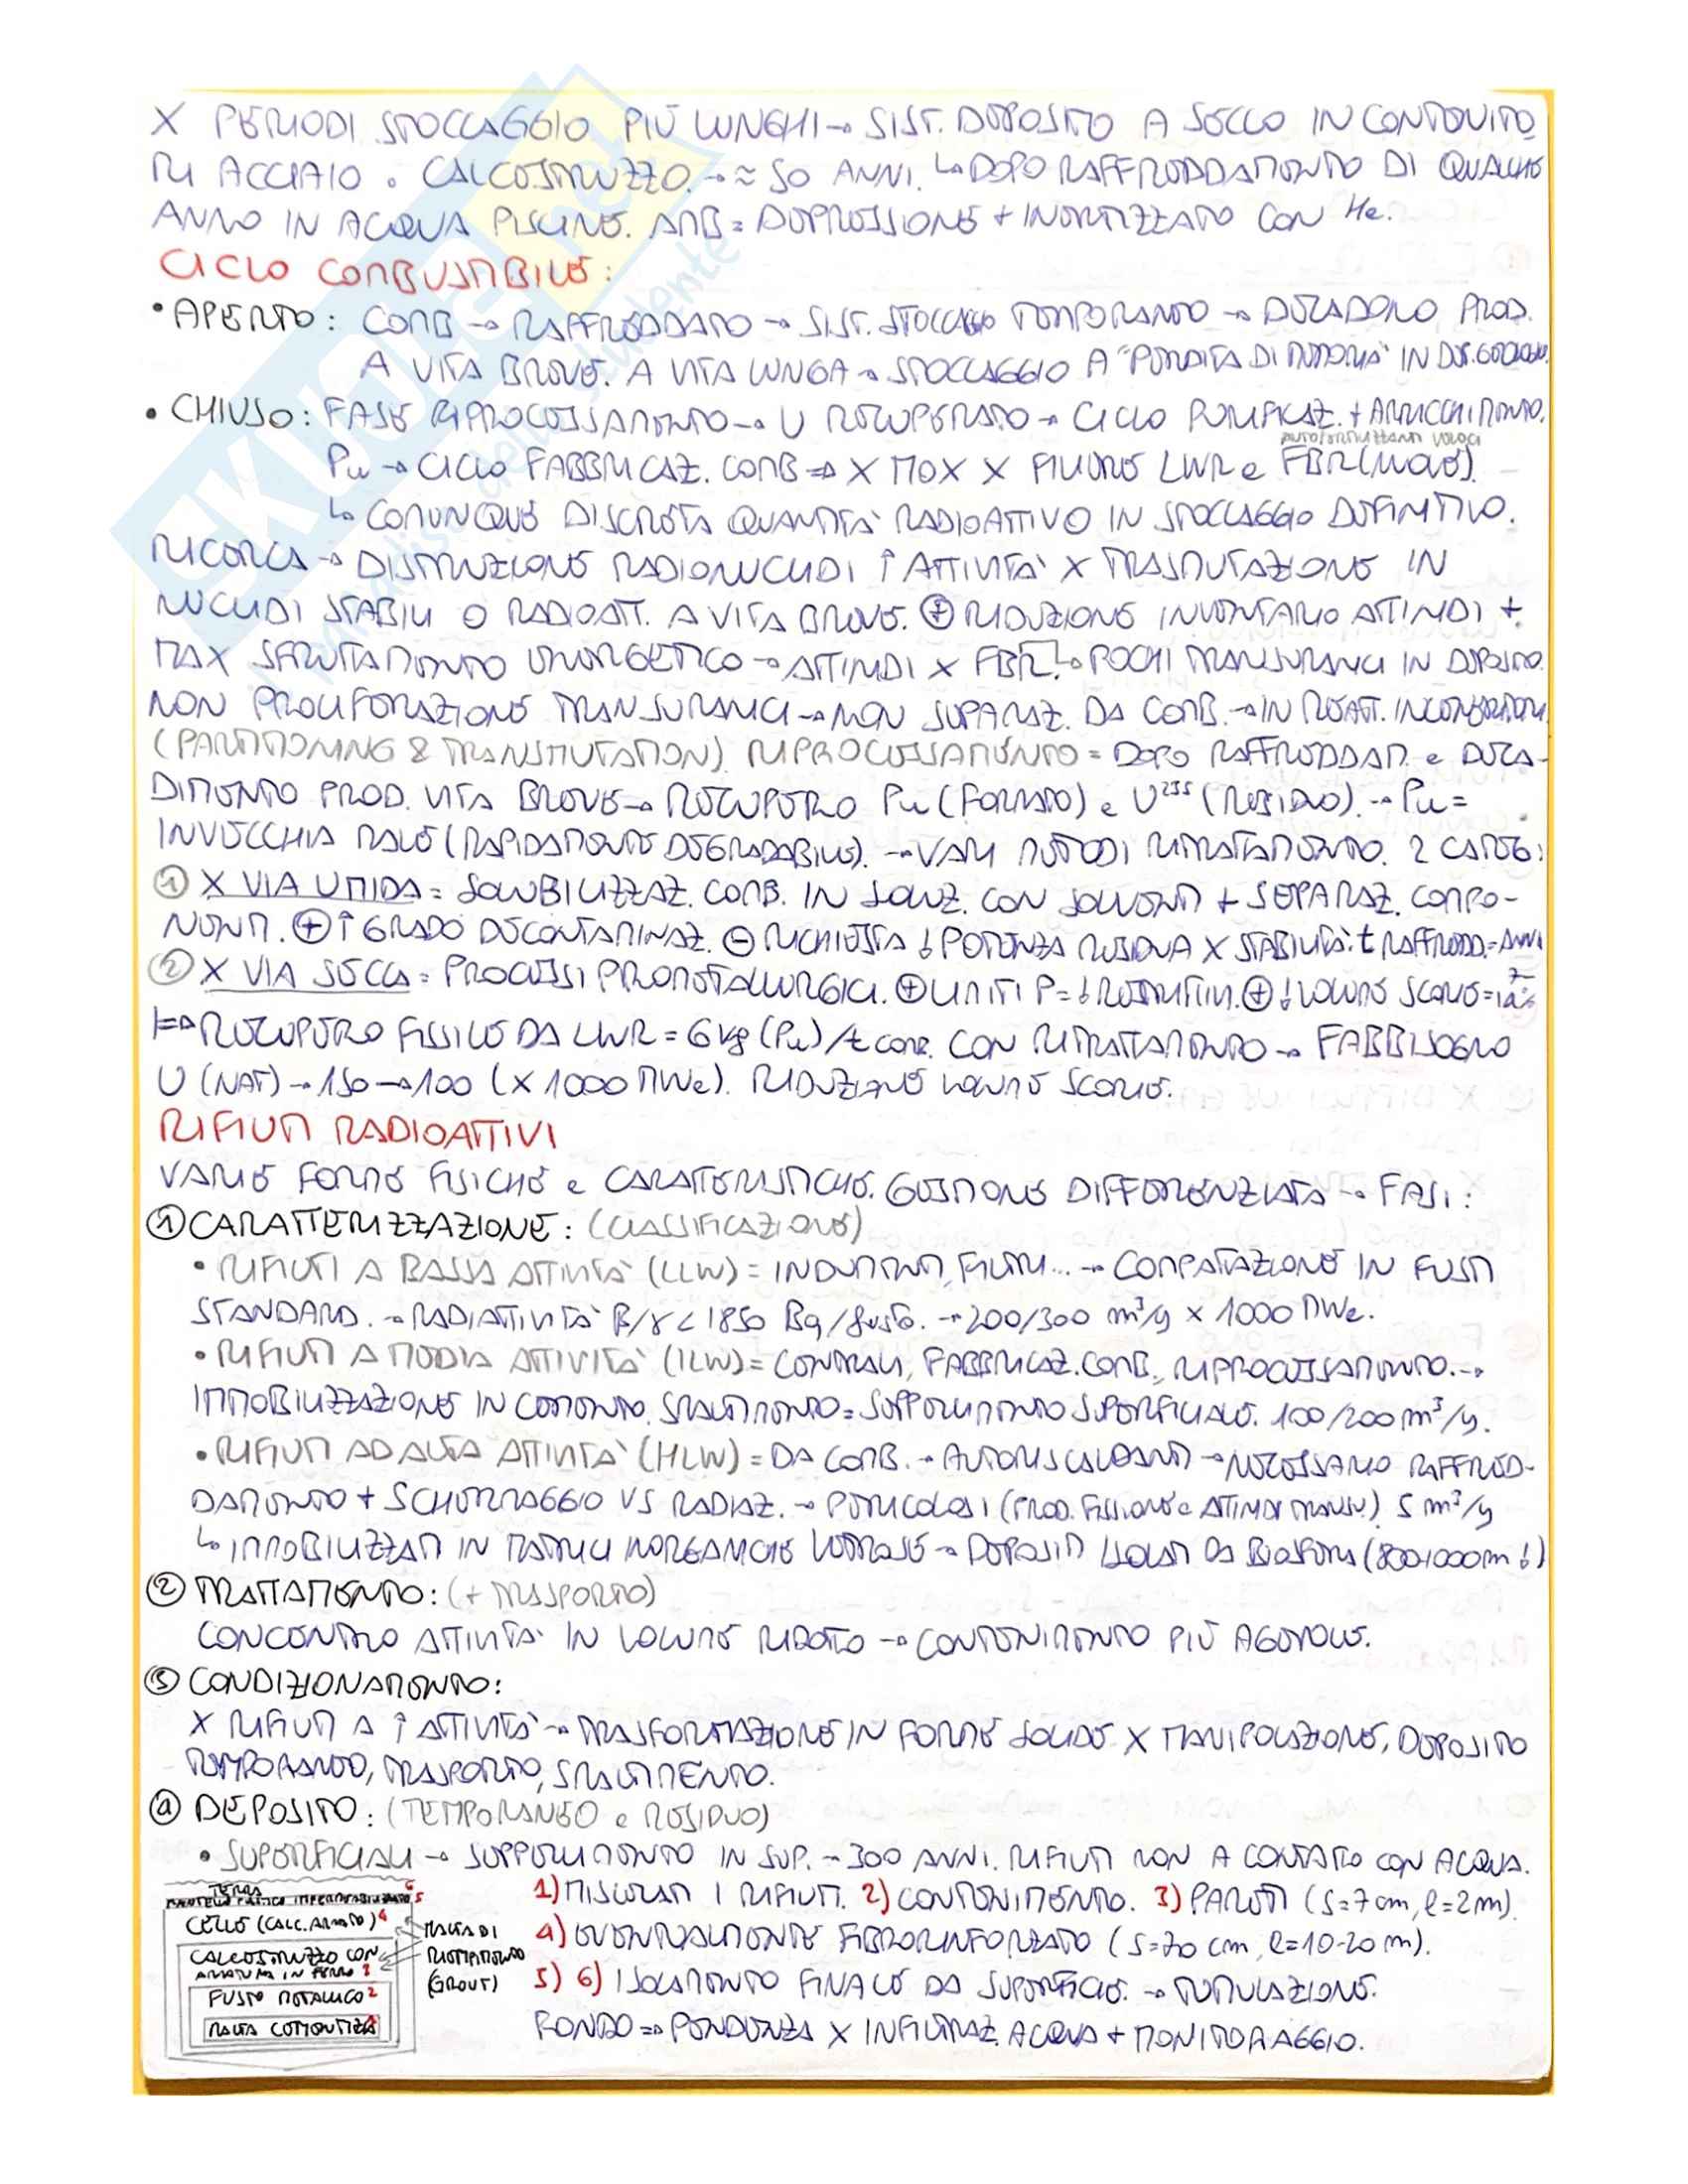 X PERIODI STOCCAGGIO PIÙ LUNGHI → SIST. DEPOSITO A SECCO IN CONTENITO
RI ACCIAIO o CALCESTRUZZO. → ≈ 50 ANNI. ↳ DOPO RAFFREDDAMENTO DI QUALCHE
ANNO IN ACQUA PISCINE. AMB = DEPRESSIONE + INERTIZZATO CON He.
CICLO COMBUSTIBILE:
• APERTO: COMB → RAFFREDDATO → SIST. STOCCAGGIO TEMPORANEO → DECADONO PROD.
A VITA BREVE. A VITA LUNGA → STOCCAGGIO A "PERDITA DI MEMORIA" IN DEP. GEOLOGICI.
• CHIUSO: FASE RIPROCESSAMENTO → U RECUPERATO → CICLO PURIFICAZ. + ARRICCHIMENTO.
autofertilizzanti veloci
Pu → CICLO FABBRICAZ. COMB ⇒ X MOX X FILIERE LWR e FBR (NOVE).
↳ COMUNQUE DISCRETA QUANTITÀ RADIOATTIVO IN STOCCAGGIO DEFINITIVO.
RICERCA → DISTRUZIONE RADIONUCLIDI ↑ ATTIVITÀ X TRASMUTAZIONE IN
NUCLIDI STABILI O RADIOATT. A VITA BREVE. ⊕ RIDUZIONE INVENTARIO ATTINIDI +
MAX SFRUTTAMENTO ENERGETICO → ATTINIDI X FBR. ↳ POCHI TRANSURANICI IN DEPOSITO.
NON PROLIFERAZIONE TRANSURANICI → NON SEPARAZ. DA COMB. → IN REATT. INCENERITORI
(PARTITIONING & TRANSMUTATION). RIPROCESSAMENTO = DOPO RAFFREDDAM. e DECA-
DIMENTO PROD. VITA BREVE → RECUPERO Pu (FORMATO) e U²³⁵ (RESIDUO). → Pu =
INVECCHIA MALE (RAPIDAMENTE DEGRADABILE). → VARI METODI RITRATTAMENTO. 2 CATEG:
① X VIA UMIDA = SOLUBILIZZAZ. COMB. IN SOLUZ. CON SOLVENTI + SEPARAZ. COMPO-
NENTI. ⊕ ↑ GRADO DECONTAMINAZ. ⊖ RICHIESTA ↓ POTENZA RESIDUA X STABILITÀ: t RAFFREDD. = ANNI
② X VIA SECCA = PROCESSI PIROMETALLURGICI. ⊕ LIMITI P = ↓ RESTRITTIVI. ⊕ ↓ VOLUME SCORIE =
⊨⇒ RECUPERO FISSILE DA LWR = 6 kg (Pu)/t COMB. CON RITRATTAMENTO → FABBISOGNO
U (NAT) → 150 → 100 (X 1000 MWe). RIDUZIONE VOLUME SCORIE.
RIFIUTI RADIOATTIVI
VARIE FORME FISICHE e CARATTERISTICHE. GESTIONE DIFFERENZIATA → FASI:
① CARATTERIZZAZIONE: (CLASSIFICAZIONE)
• RIFIUTI A BASSA ATTIVITÀ (LLW) = INDUMENTI, FILTRI... → COMPATTAZIONE IN FUSTI
STANDARD. → RADIATTIVITÀ β/γ < 1850 Bq/fusto. → 200/300 m³/y X 1000 MWe.
• RIFIUTI A MEDIA ATTIVITÀ (ILW) = CENTRALI, FABBRICAZ. COMB., RIPROCESSAMENTO. →
IMMOBILIZZAZIONE IN CEMENTO. SMALTIMENTO = SEPPELLIMENTO SUPERFICIALE. 100/200 m³/y.
• RIFIUTI AD ALTA ATTIVITÀ (HLW) = DA COMB. → AUTORISCALDANTI → NECESSARIO RAFFRED-
DAMENTO + SCHERMAGGIO VS RADIAZ. → PERICOLOSI (PROD. FISSIONE e ATTINIDI TRANSU.) 5 m³/y
↳ IMMOBILIZZATI IN MATRICI INORGANICHE VETROSE → DEPOSITI ISOLATI DA BIOSFERA (800÷1000 m ↓)
② TRATTAMENTO: (+ TRASPORTO)
CONCENTRO ATTIVITÀ IN VOLUME RIDOTTO → CONTENIMENTO PIÙ AGEVOLE.
③ CONDIZIONAMENTO:
X RIFIUTI A ↑ ATTIVITÀ → TRASFORMAZIONE IN FORME SOLIDE X MANIPOLAZIONE, DEPOSITO
TEMPORANEO, TRASPORTO, SMALTIMENTO.
④ DEPOSITO: (TEMPORANEO e RESIDUO)
• SUPERFICIALI → SEPPELLIMENTO IN SUP. → 300 ANNI. RIFIUTI NON A CONTATTO CON ACQUA.
1) MISCELATI I RIFIUTI. 2) CONTENIMENTO. 3) PARETI (S=7 cm, l=2m).
4) EVENTUALMENTE FIBRORINFORZATO (S=70 cm, l=10-20 m).
5) 6) ISOLAMENTO FINALE DA SUPERFICIE. → TUMULAZIONE.
FONDO ⇒ PENDENZA X INFILTRAZ. ACQUA + MONITORAGGIO.
TERRA 6
MANTELLO PLASTICO IMPERMEABILIZZATO 5
CELLE (CALC. ARMATO) 4
CALCESTRUZZO CON
ARMATURA IN FERRO 3
FUSTO METALLICO 2
MALTA CEMENTIZIA
MALTA DI
RIEMPIMENTO
(GROUT)
SKUOLA.net